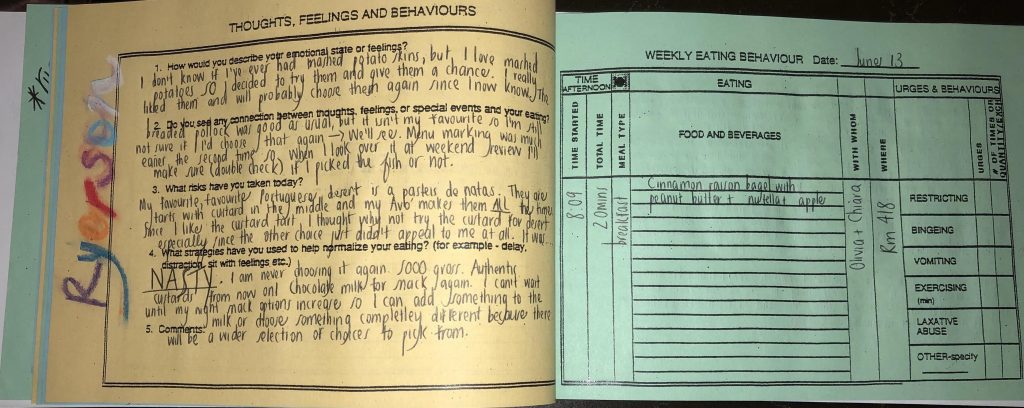 THOUGHTS, FEELINGS AND BEHAVIOURS
1. How would you describe your emotional state or feelings?
I don't know if I've ever had mashed potato skins, but I love mashed
potatoes so I decided to try them and give them a chance. I really
liked them and will probably choose them again since I now know. The
2. Do you see any connection between thoughts, feelings, or special events and your eating?
breaded pollock was good as usual, but it isn't my favourite so I'm still
not sure if I'd choose that again → We'll see. Menu marking was much
easier the second time so when I look over it at weekend review I'll
make sure (double check) if I picked the fish or not.
3. What risks have you taken today?
My favourite, favourite Portuguese desert is a pasteis de natas. They are
tarts with custard in the middle and my Avo makes them ALL the times
Since I like the custard tart, I thought why not try the custard for desert
especially since the other choice just didn't appeal to me at all. It was...
4. What strategies have you used to help normalize your eating? (for example - delay,
distraction, sit with feelings etc.)
NASTY. I am never choosing it again. SOOO gross. Authentic
custards from now on! Chocolate milk for snack again. I can't wait
until my night snack options increase so I can add something to the
milk or choose something completley different because there
5. Comments:
will be a wider selection of choices to pick from.
Ryerson
WEEKLY EATING BEHAVIOUR Date: June 13
TIME
AFTERNOON
EATING
URGES & BEHAVIOURS
TIME STARTED
TOTAL TIME
MEAL TYPE
FOOD AND BEVERAGES
WITH WHOM
WHERE
URGES
# OF TIMES OR
QUANTITY/EXCH
8:09
20mins
breakfast
Cinnamon raison bagel with
peanut butter + nutella + apple
Olivia + Chiara
Rm 418
RESTRICTING
BINGEING
VOMITING
EXERCISING
(min)
LAXATIVE
ABUSE
OTHER-specify